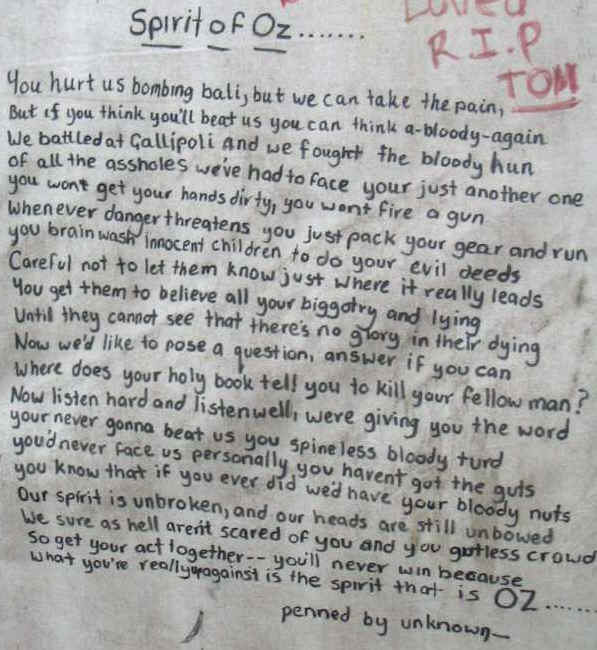 Spirit of Oz.......
Loved
R.I.P
TOM
You hurt us bombing bali, but we can take the pain,
But if you think you'll beat us you can think a-bloody-again
We battled at Gallipoli and we fought the bloody hun
of all the assholes we've had to face your just another one
you wont get your hands dirty, you wont fire a gun
Whenever danger threatens you just pack your gear and run
you brain wash innocent children to do your evil deeds
Careful not to let them know just where it really leads
You get them to believe all your biggotry and lying
Until they cannot see that there's no glory in their dying
Now we'd like to pose a question, answer if you can
Where does your holy book tell you to kill your fellow man?
Now listen hard and listen well, were giving you the word
your never gonna beat us you spineless bloody turd
you'd never face us personally you havent got the guts
you know that if you ever did we'd have your bloody nuts
Our spirit is unbroken, and our heads are still unbowed
We sure as hell aren't scared of you and you gutless crowd
So get your act together-- you'll never win because
What you're really upagainst is the spirit that is OZ......
penned by unknown—